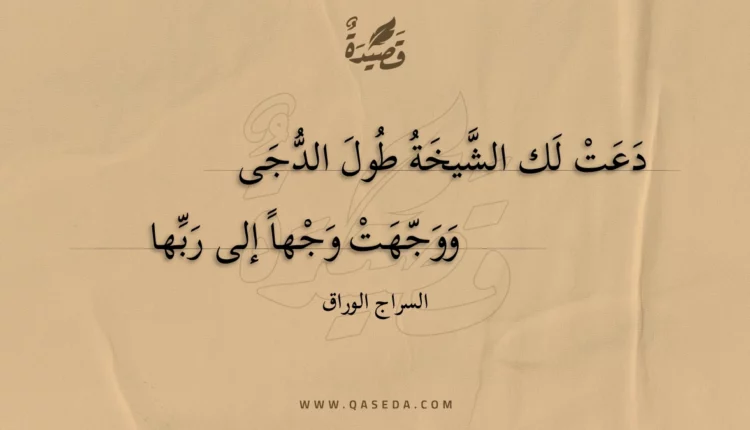 قَصِيدَةٌ
دَعَتْ لَك الشَّيخَةُ طُولَ الدُّجَى
وَوَجّهَتْ وَجْهاً إلى رَبِّها
السراج الوراق
WWW.QASEDA.COM